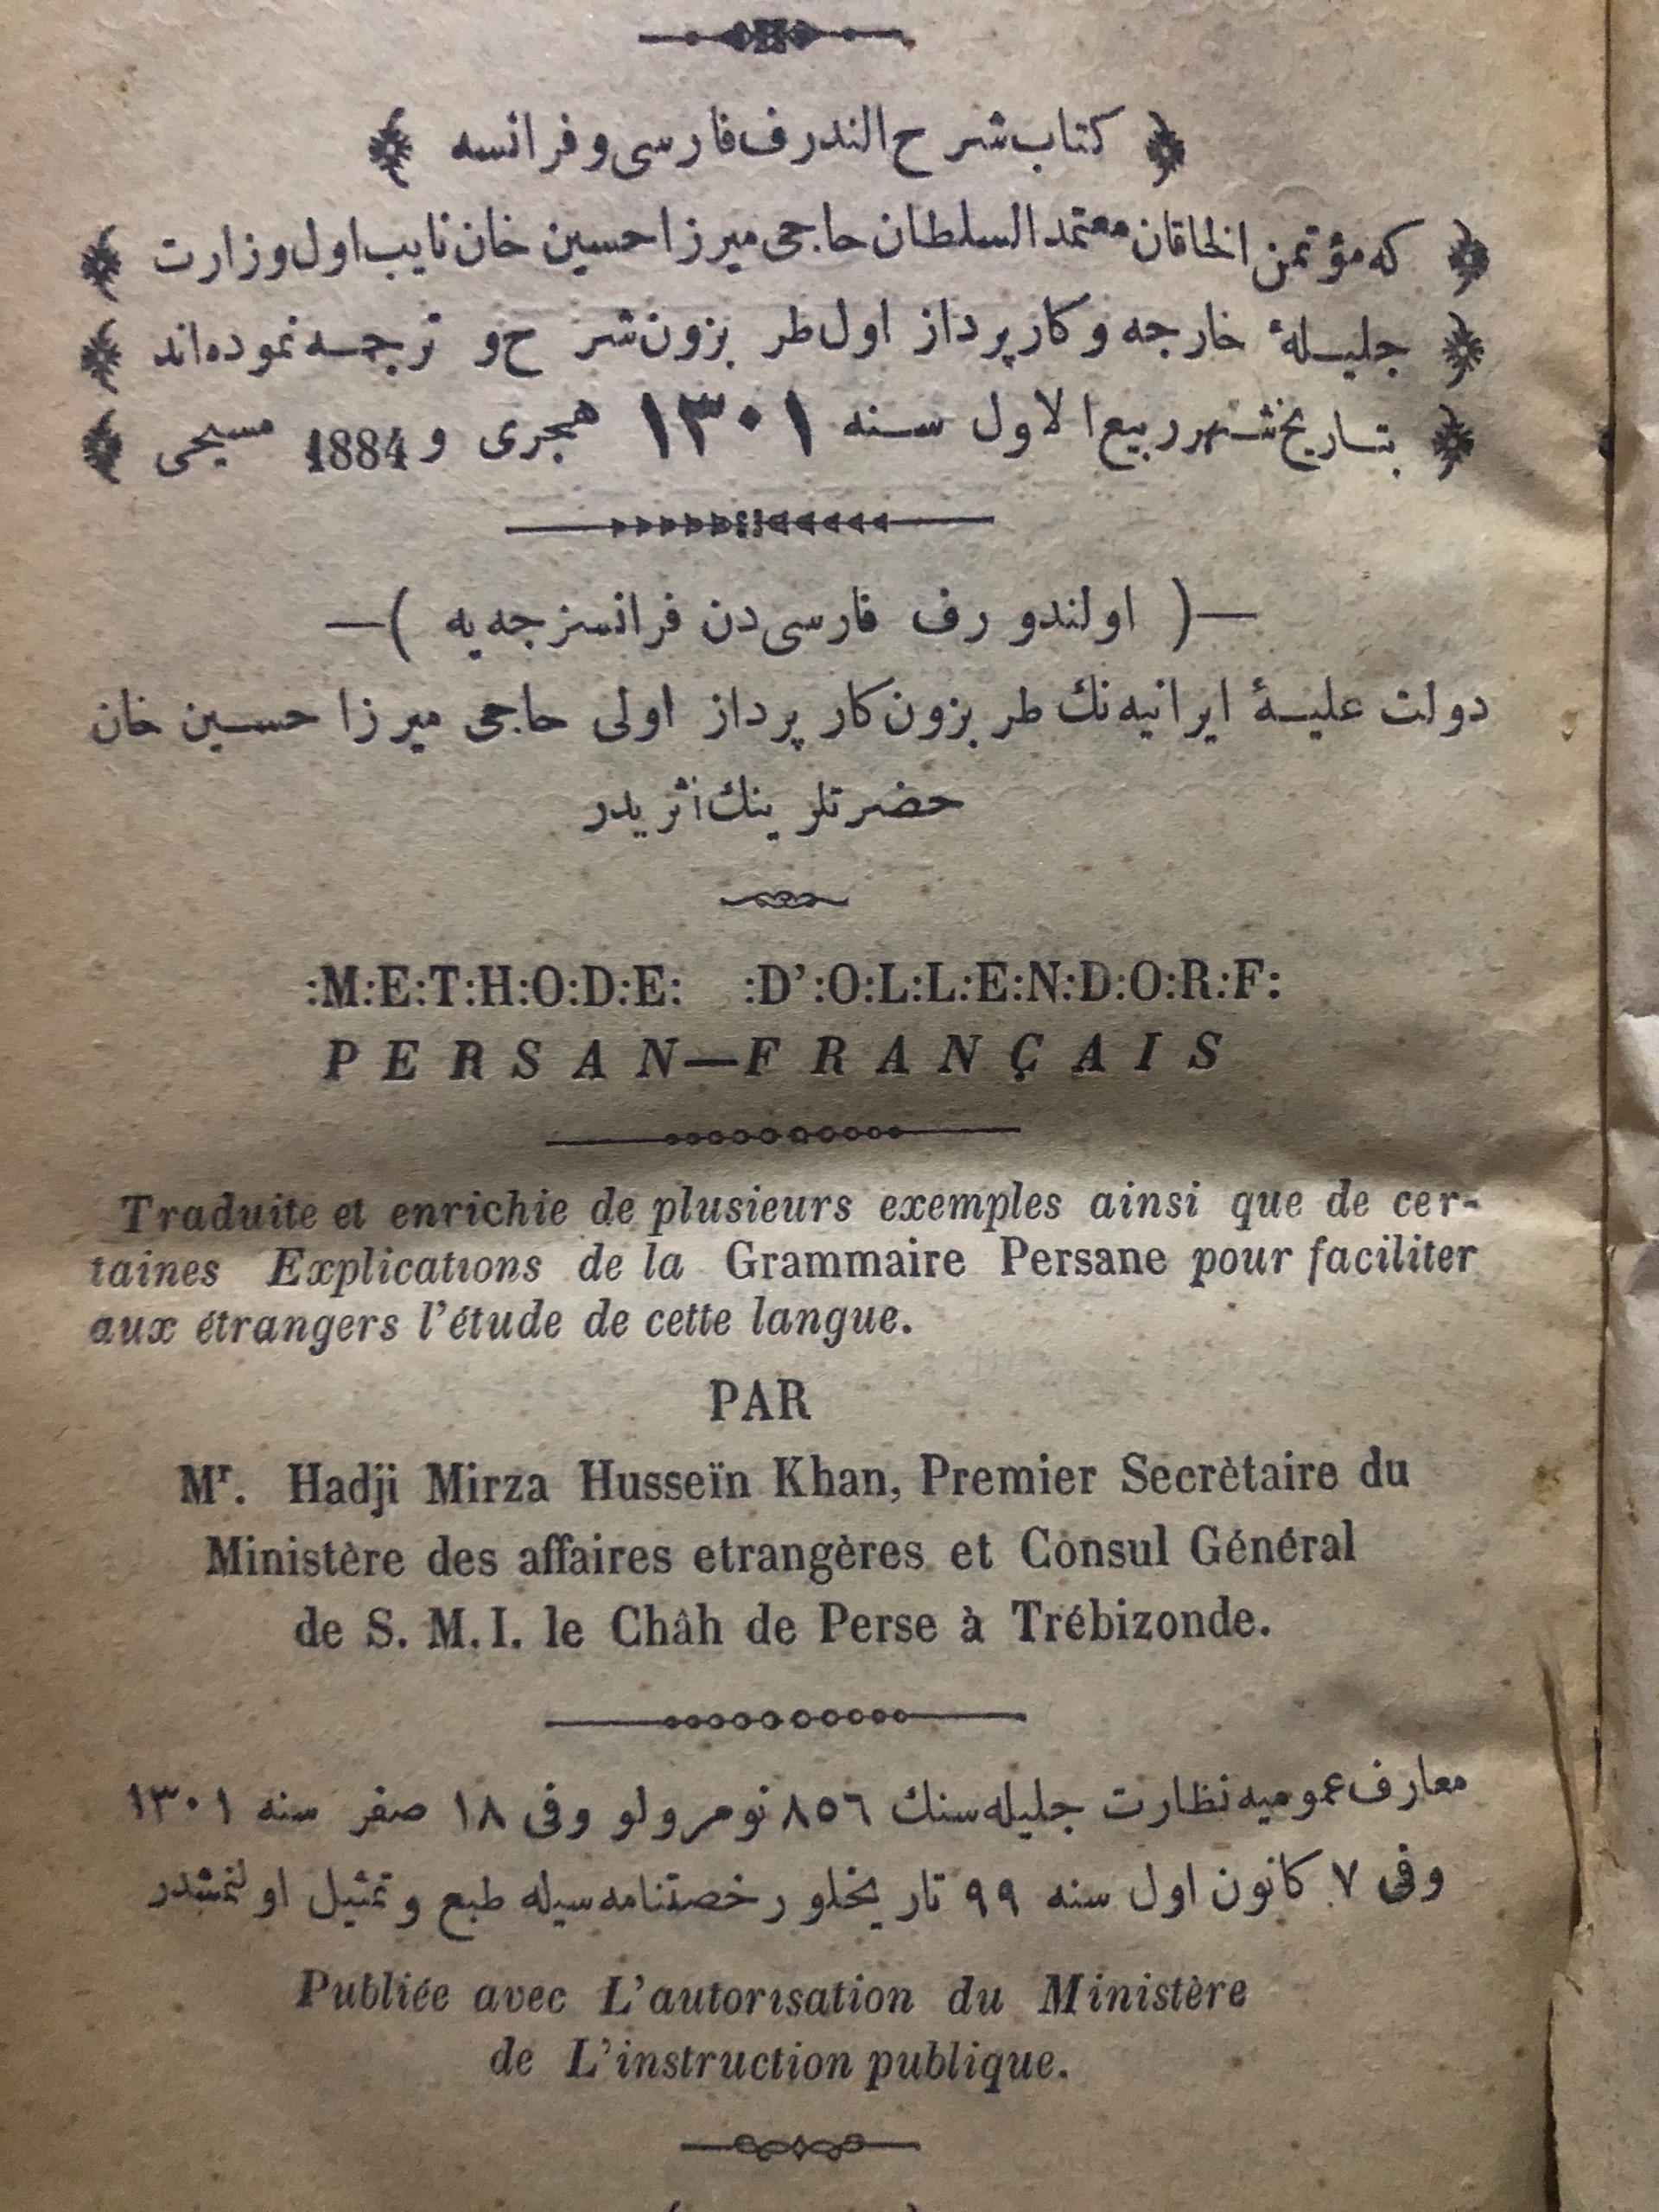 كتاب شرح الندرف فارسی و فرانسه
كه مؤتمن الخاقان معتمد السلطان حاجی میرزا حسین خان نایب اول وزارت
جلیلهٔ خارجه و كارپرداز اول طربزون شرح و ترجمه نموده‌اند
بتاریخ شهر ربیع الاول سنه ١٣٠١ هجری و 1884 مسیحی
—( اولندورف فارسی‌دن فرانسزجه‌یه )—
دولت علیهٔ ایرانیه‌نك طربزون كارپرداز اولی حاجی میرزا حسین خان
حضرتلرینك اثریدر
:M:E:T:H:O:D:E: :D’:O:L:L:E:N:D:O:R:F:
PERSAN—FRANÇAIS
Traduite et enrichie de plusieurs exemples ainsi que de cer-
taines Explications de la Grammaire Persane pour faciliter
aux étrangers l’étude de cette langue.
PAR
Mr. Hadji Mirza Husseïn Khan, Premier Secrètaire du
Ministère des affaires etrangères et Consul Général
de S. M. I. le Châh de Perse à Trébizonde.
معارف عمومیه نظارت جلیله‌سنك ٨٥٦ نومرولو وفی ١٨ صفر سنه ١٣٠١
وفی ٧ كانون اول سنه ٩٩ تاریخلو رخصتنامه‌سیله طبع و تمثیل اولنمشدر
Publiée avec L’autorisation du Ministère
de L’instruction publique.